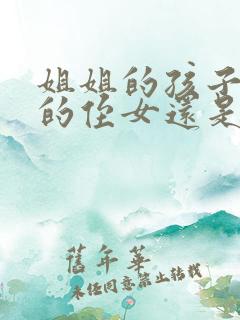 姐姐的孩子
的侄女還是
舊年華
未经同意禁止转载